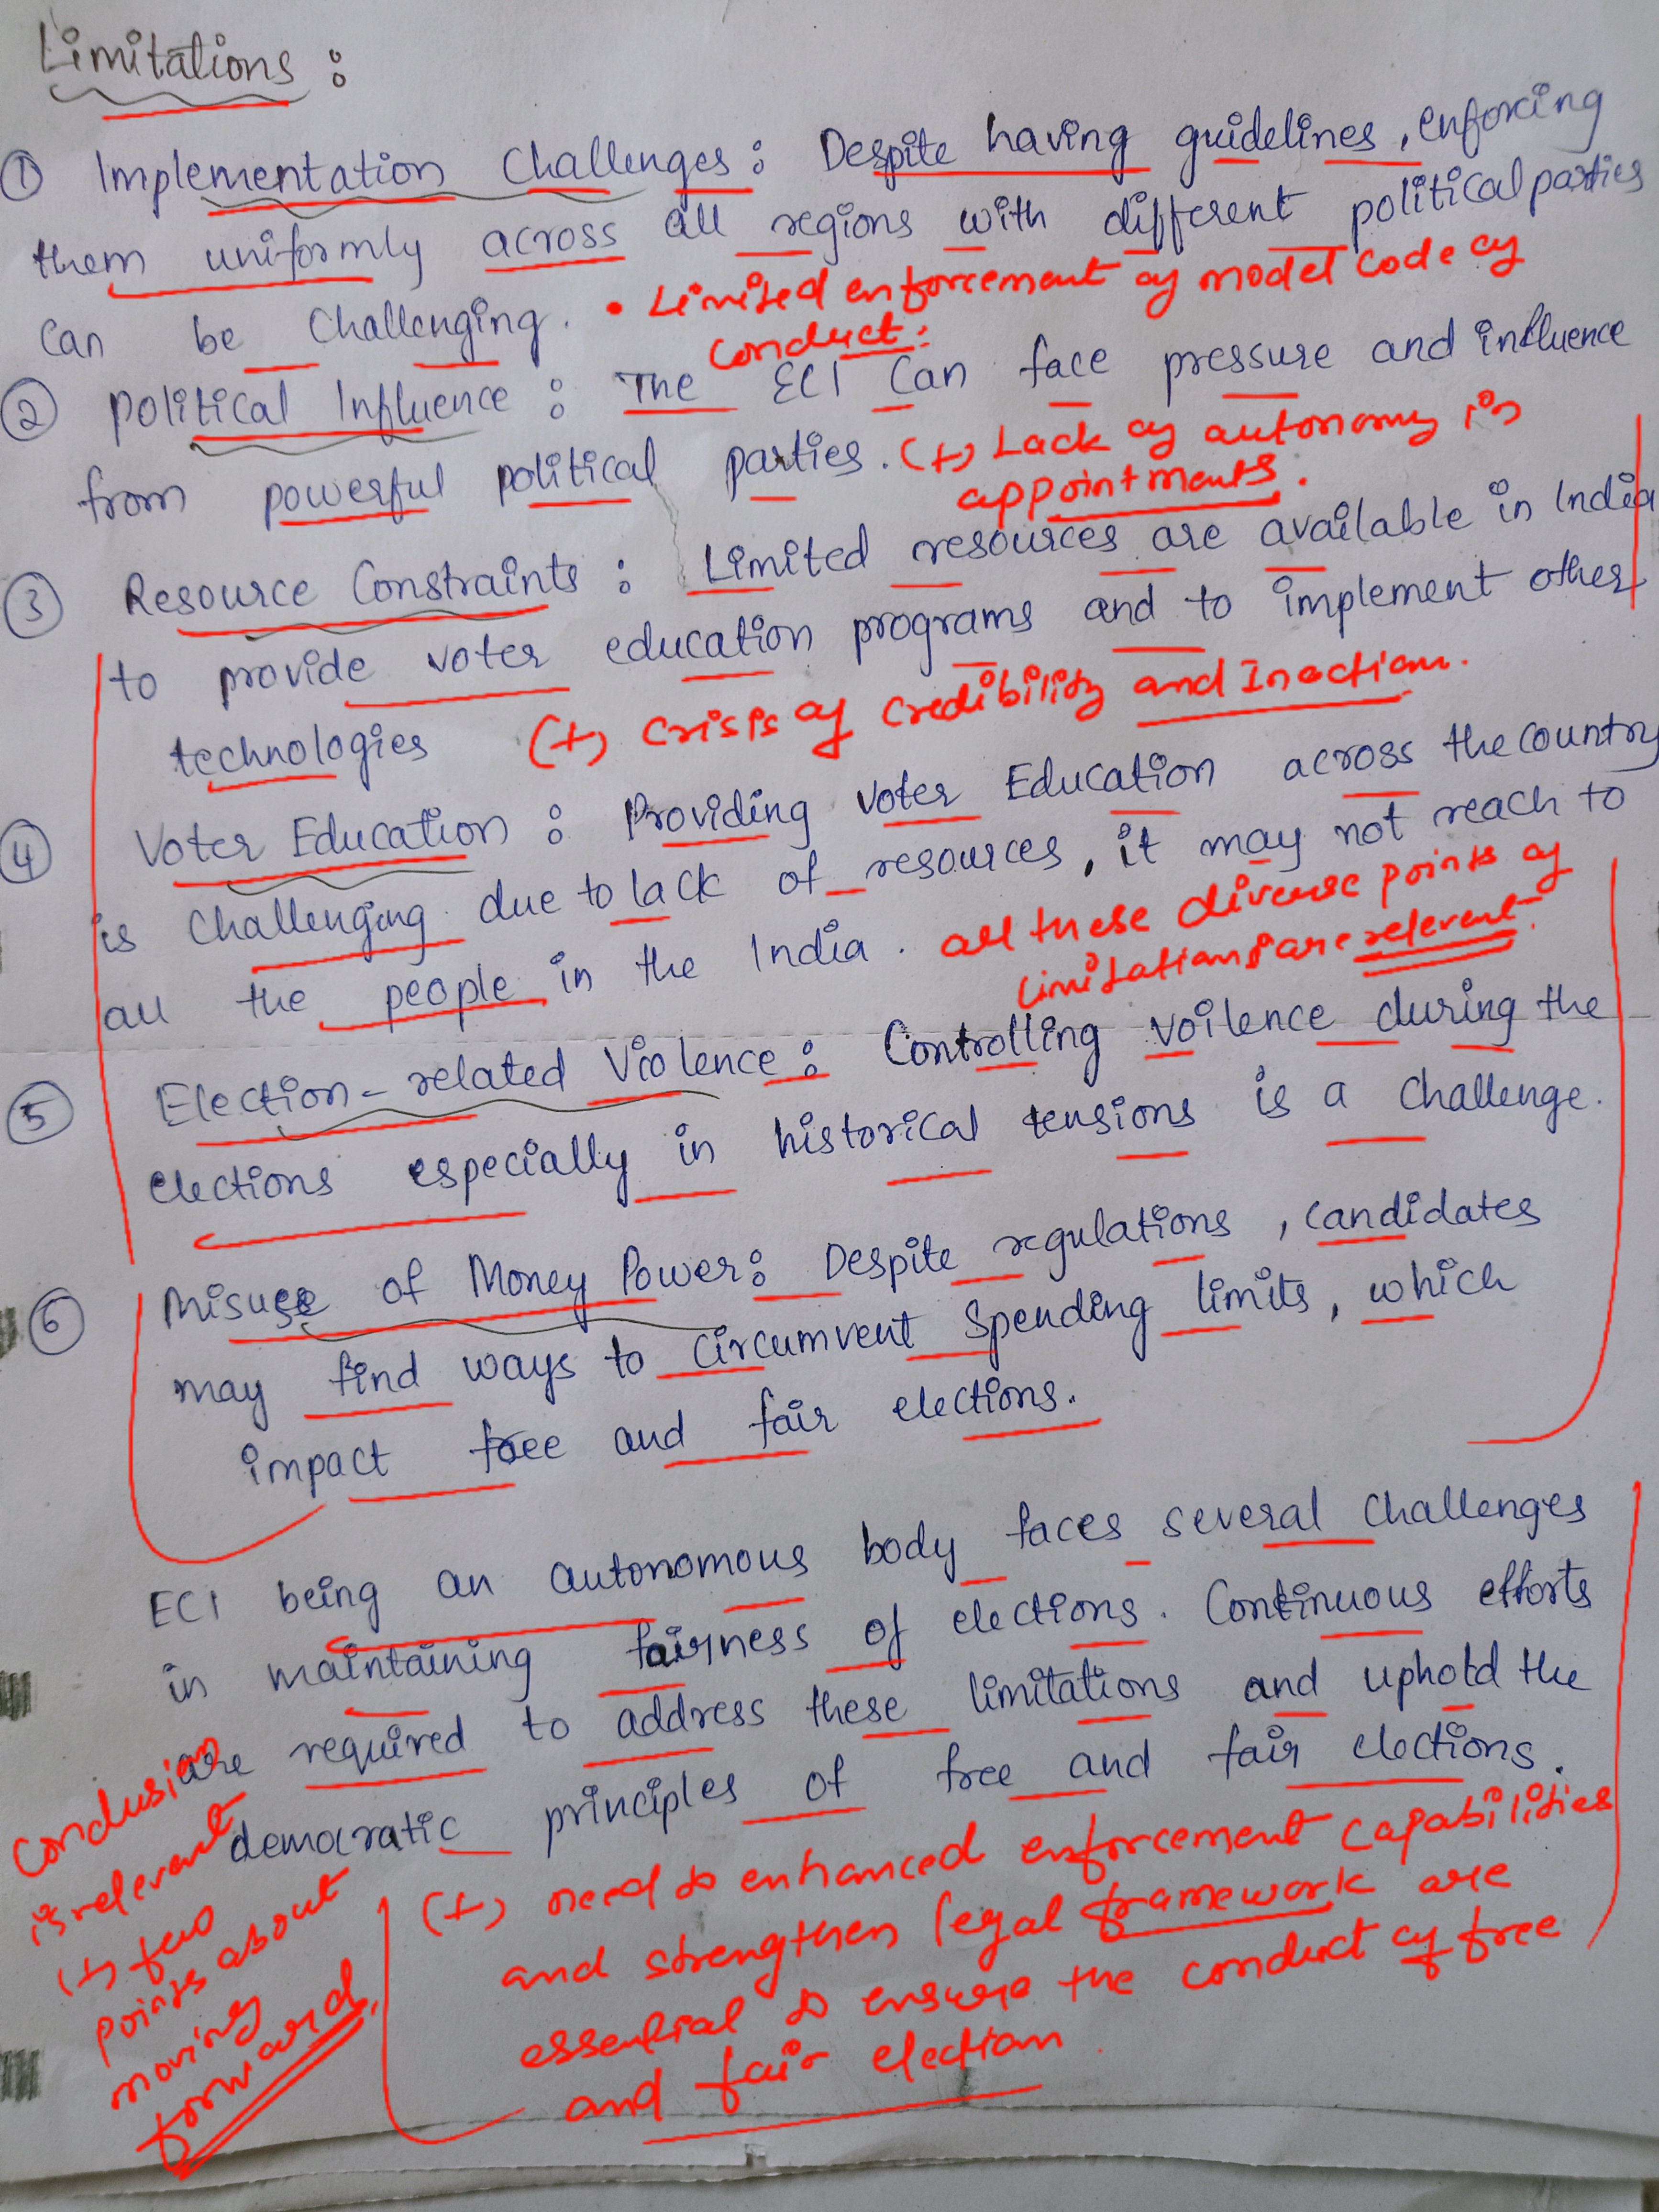 Limitations :
① Implementation Challenges : Despite having guidelines, enforcing
them uniformly across all regions with different political parties
can be Challenging. • Limited enforcement of model code of
conduct:
② Political Influence : The ECI Can face pressure and influence
from powerful political parties. (+) Lack of autonomy in
appointments.
③ Resource Constraints : Limited resources are available in India
to provide voter education programs and to implement other
technologies (+) crisis of credibility and Inaction.
④ Voter Education : Providing Voter Education across the country
is Challenging due to lack of resources, it may not reach to
all the people in the India. all these diverse points of
limitations are relevent.
⑤ Election-related Violence : Controlling voilence during the
elections especially in historical tensions is a challenge.
⑥ Misuse of Money Power : Despite regulations, candidates
may find ways to circumvent Spending limits, which
impact free and fair elections.
ECI being an autonomous body faces several challenges
in maintaining fairness of elections. Continuous efforts
are required to address these limitations and uphold the
democratic principles of free and fair elections.
Conclusion
is relevant
(+) few
points about
moving
forward.
(+) need to enhanced enforcement capabilities
and strengthen legal framework are
essential to ensure the conduct of free
and fair election.